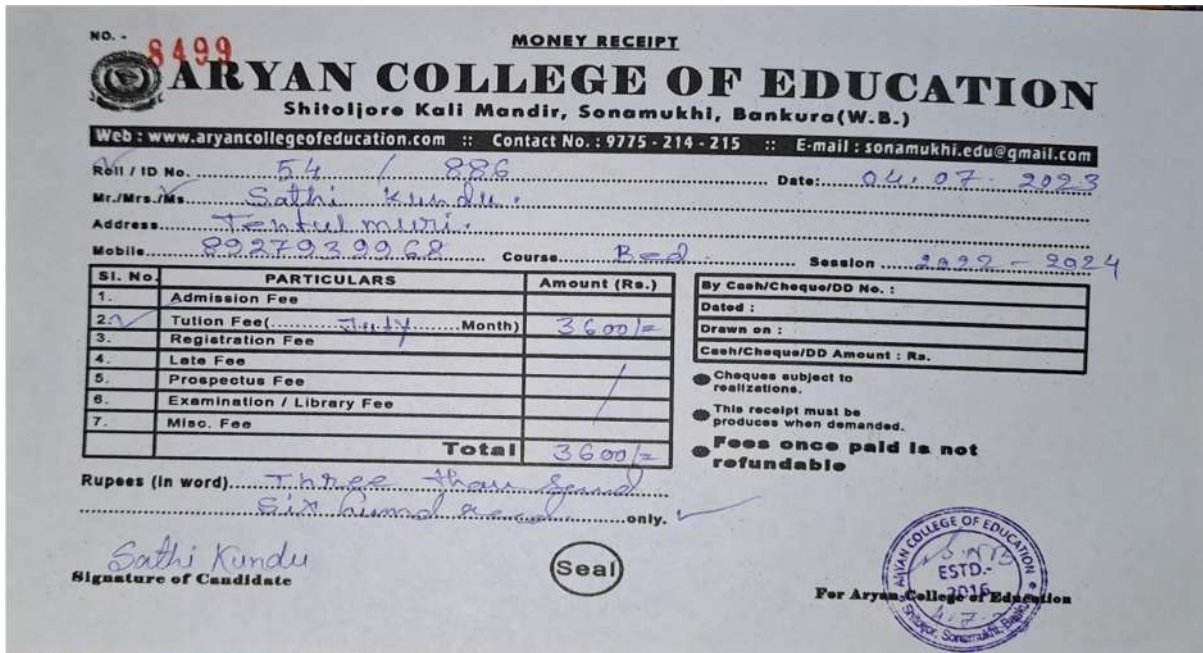 NO. - 8499
MONEY RECEIPT
ARYAN COLLEGE OF EDUCATION
Shitoljore Kali Mandir, Sonamukhi, Bankura(W.B.)
Web : www.aryancollegeofeducation.com :: Contact No. : 9775 - 214 - 215 :: E-mail : sonamukhi.edu@gmail.com
Roll / ID No. 54 / 886 Date: 04.07.2023
Mr./Mrs./Ms. Sathi Kundu.
Address Tentulmuri.
Mobile 8927939968 Course Bed. Session 2022 - 2024
Sl. No. PARTICULARS Amount (Rs.)
1. Admission Fee
2. Tution Fee( July Month) 3600/=
3. Registration Fee
4. Late Fee
5. Prospectus Fee
6. Examination / Library Fee
7. Misc. Fee
Total 3600/=
By Cash/Cheque/DD No. :
Dated :
Drawn on :
Cash/Cheque/DD Amount : Rs.
Cheques subject to
realizations.
This receipt must be
produces when demanded.
Fees once paid is not
refundable
Rupees (in word) Three thousand
six hundred only.
Sathi Kundu
Signature of Candidate
Seal
For Aryan College of Education
ARYAN COLLEGE OF EDUCATION
ESTD.-
2016
Shitoljor, Sonamukhi, Bankura